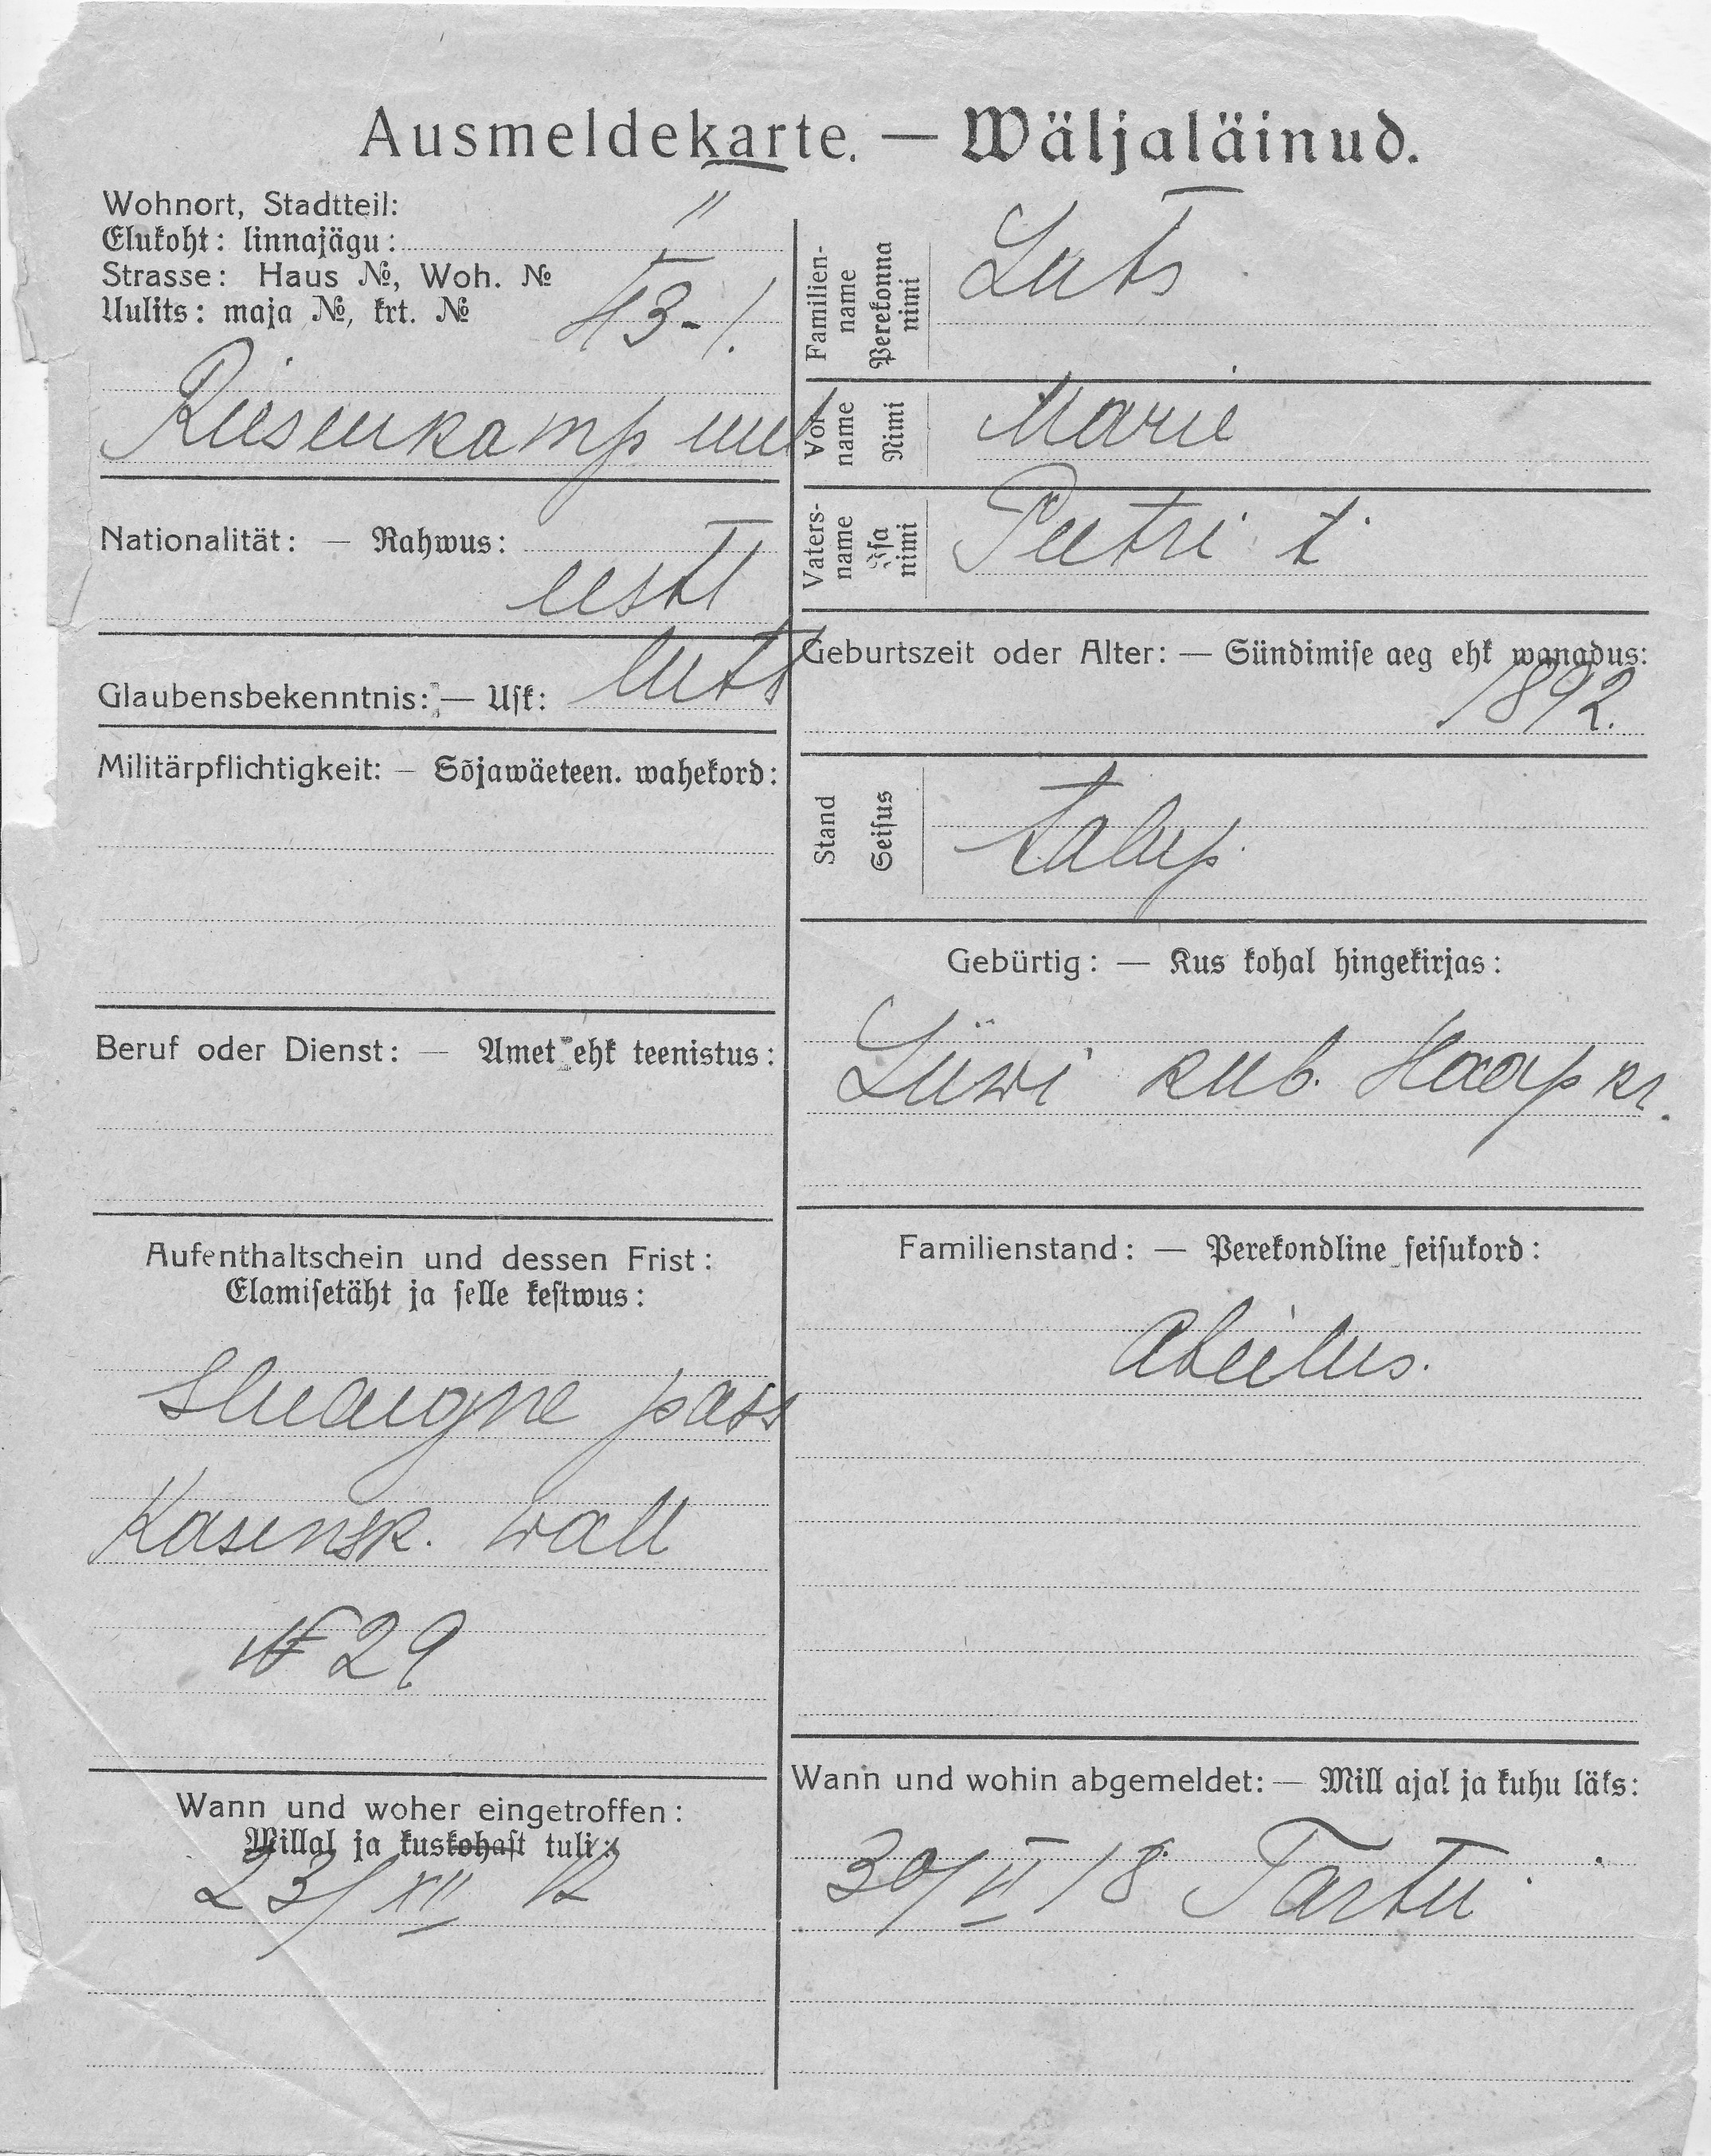 Ausmeldekarte. — Wäljaläinud.
Wohnort, Stadtteil:
Elukoht: linnajägu:
Strasse: Haus №, Woh. №
Uulits: maja №, krt. № 43-1.
Nationalität: — Rahwus:
eesti
Glaubensbekenntnis: — Usk: luts
Militärpflichtigkeit: — Sõjawäeteen. wahekord:
Beruf oder Dienst: — Amet ehk teenistus:
Aufenthaltschein und dessen Frist:
Elamisetäht ja selle kestwus:
pass
Kasensk. wall
№ 29
Wann und woher eingetroffen:
Millal ja kuskohast tuli:
23/XII 12
Familienname
Perekonna nimi
Luts
Vorname
Nimi
Marie
Vatersname
Isa nimi
Peetri t.
Geburtszeit oder Alter: — Sündimise aeg ehk wanadus:
1892.
Stand
Seisus
talup.
Gebürtig: — Kus kohal hingekirjas:
Liiwi kub. Haaps kr.
Familienstand: — Perekondline seisukord:
abielus.
Wann und wohin abgemeldet: — Mill ajal ja kuhu läks:
30/VI 18 Tartu